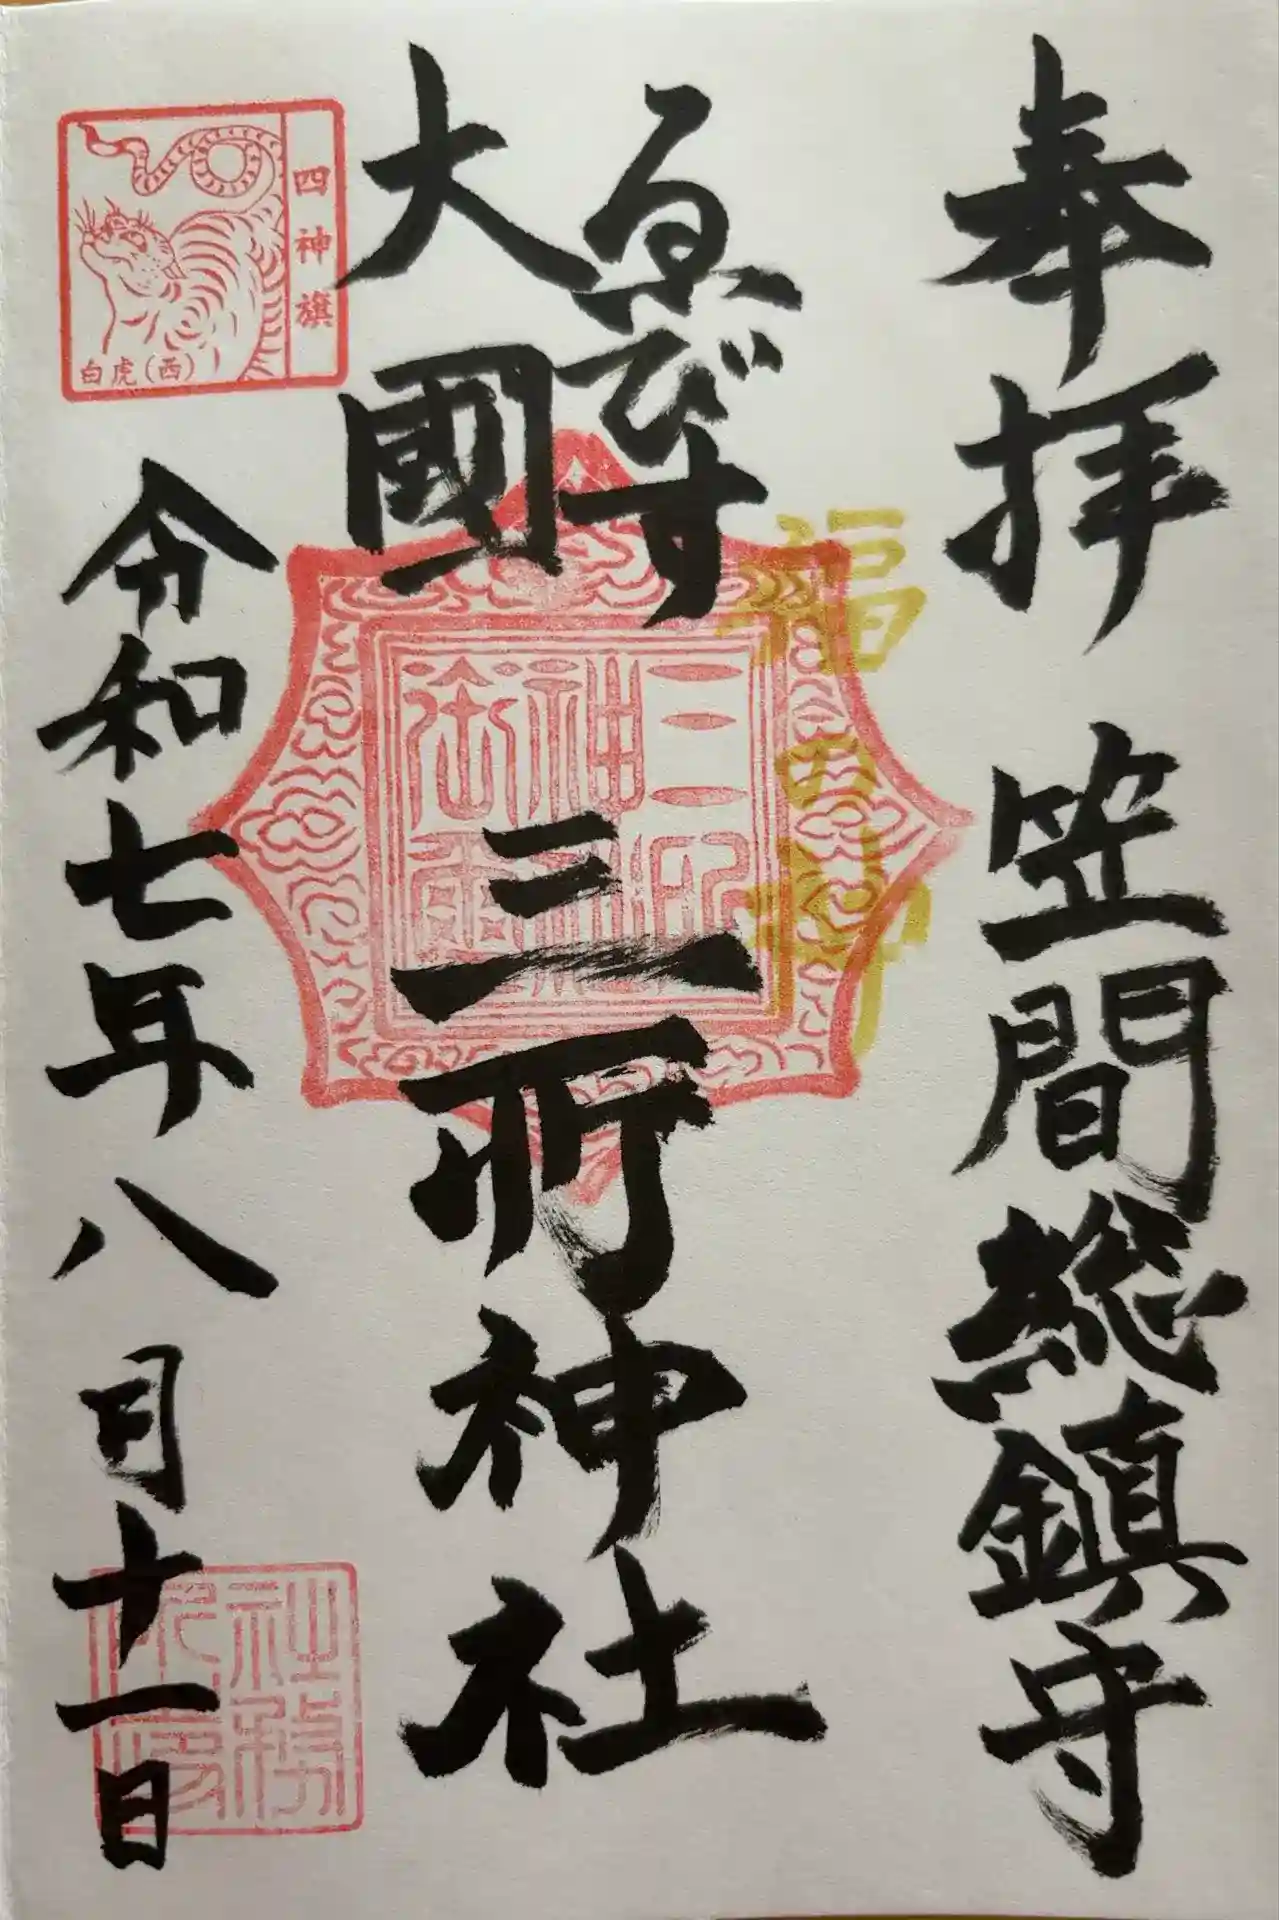 奉拝 笠間総鎮守
福の神
ゑびす
大國
三所神社
四神旗
白虎(西)
令和七年八月十一日